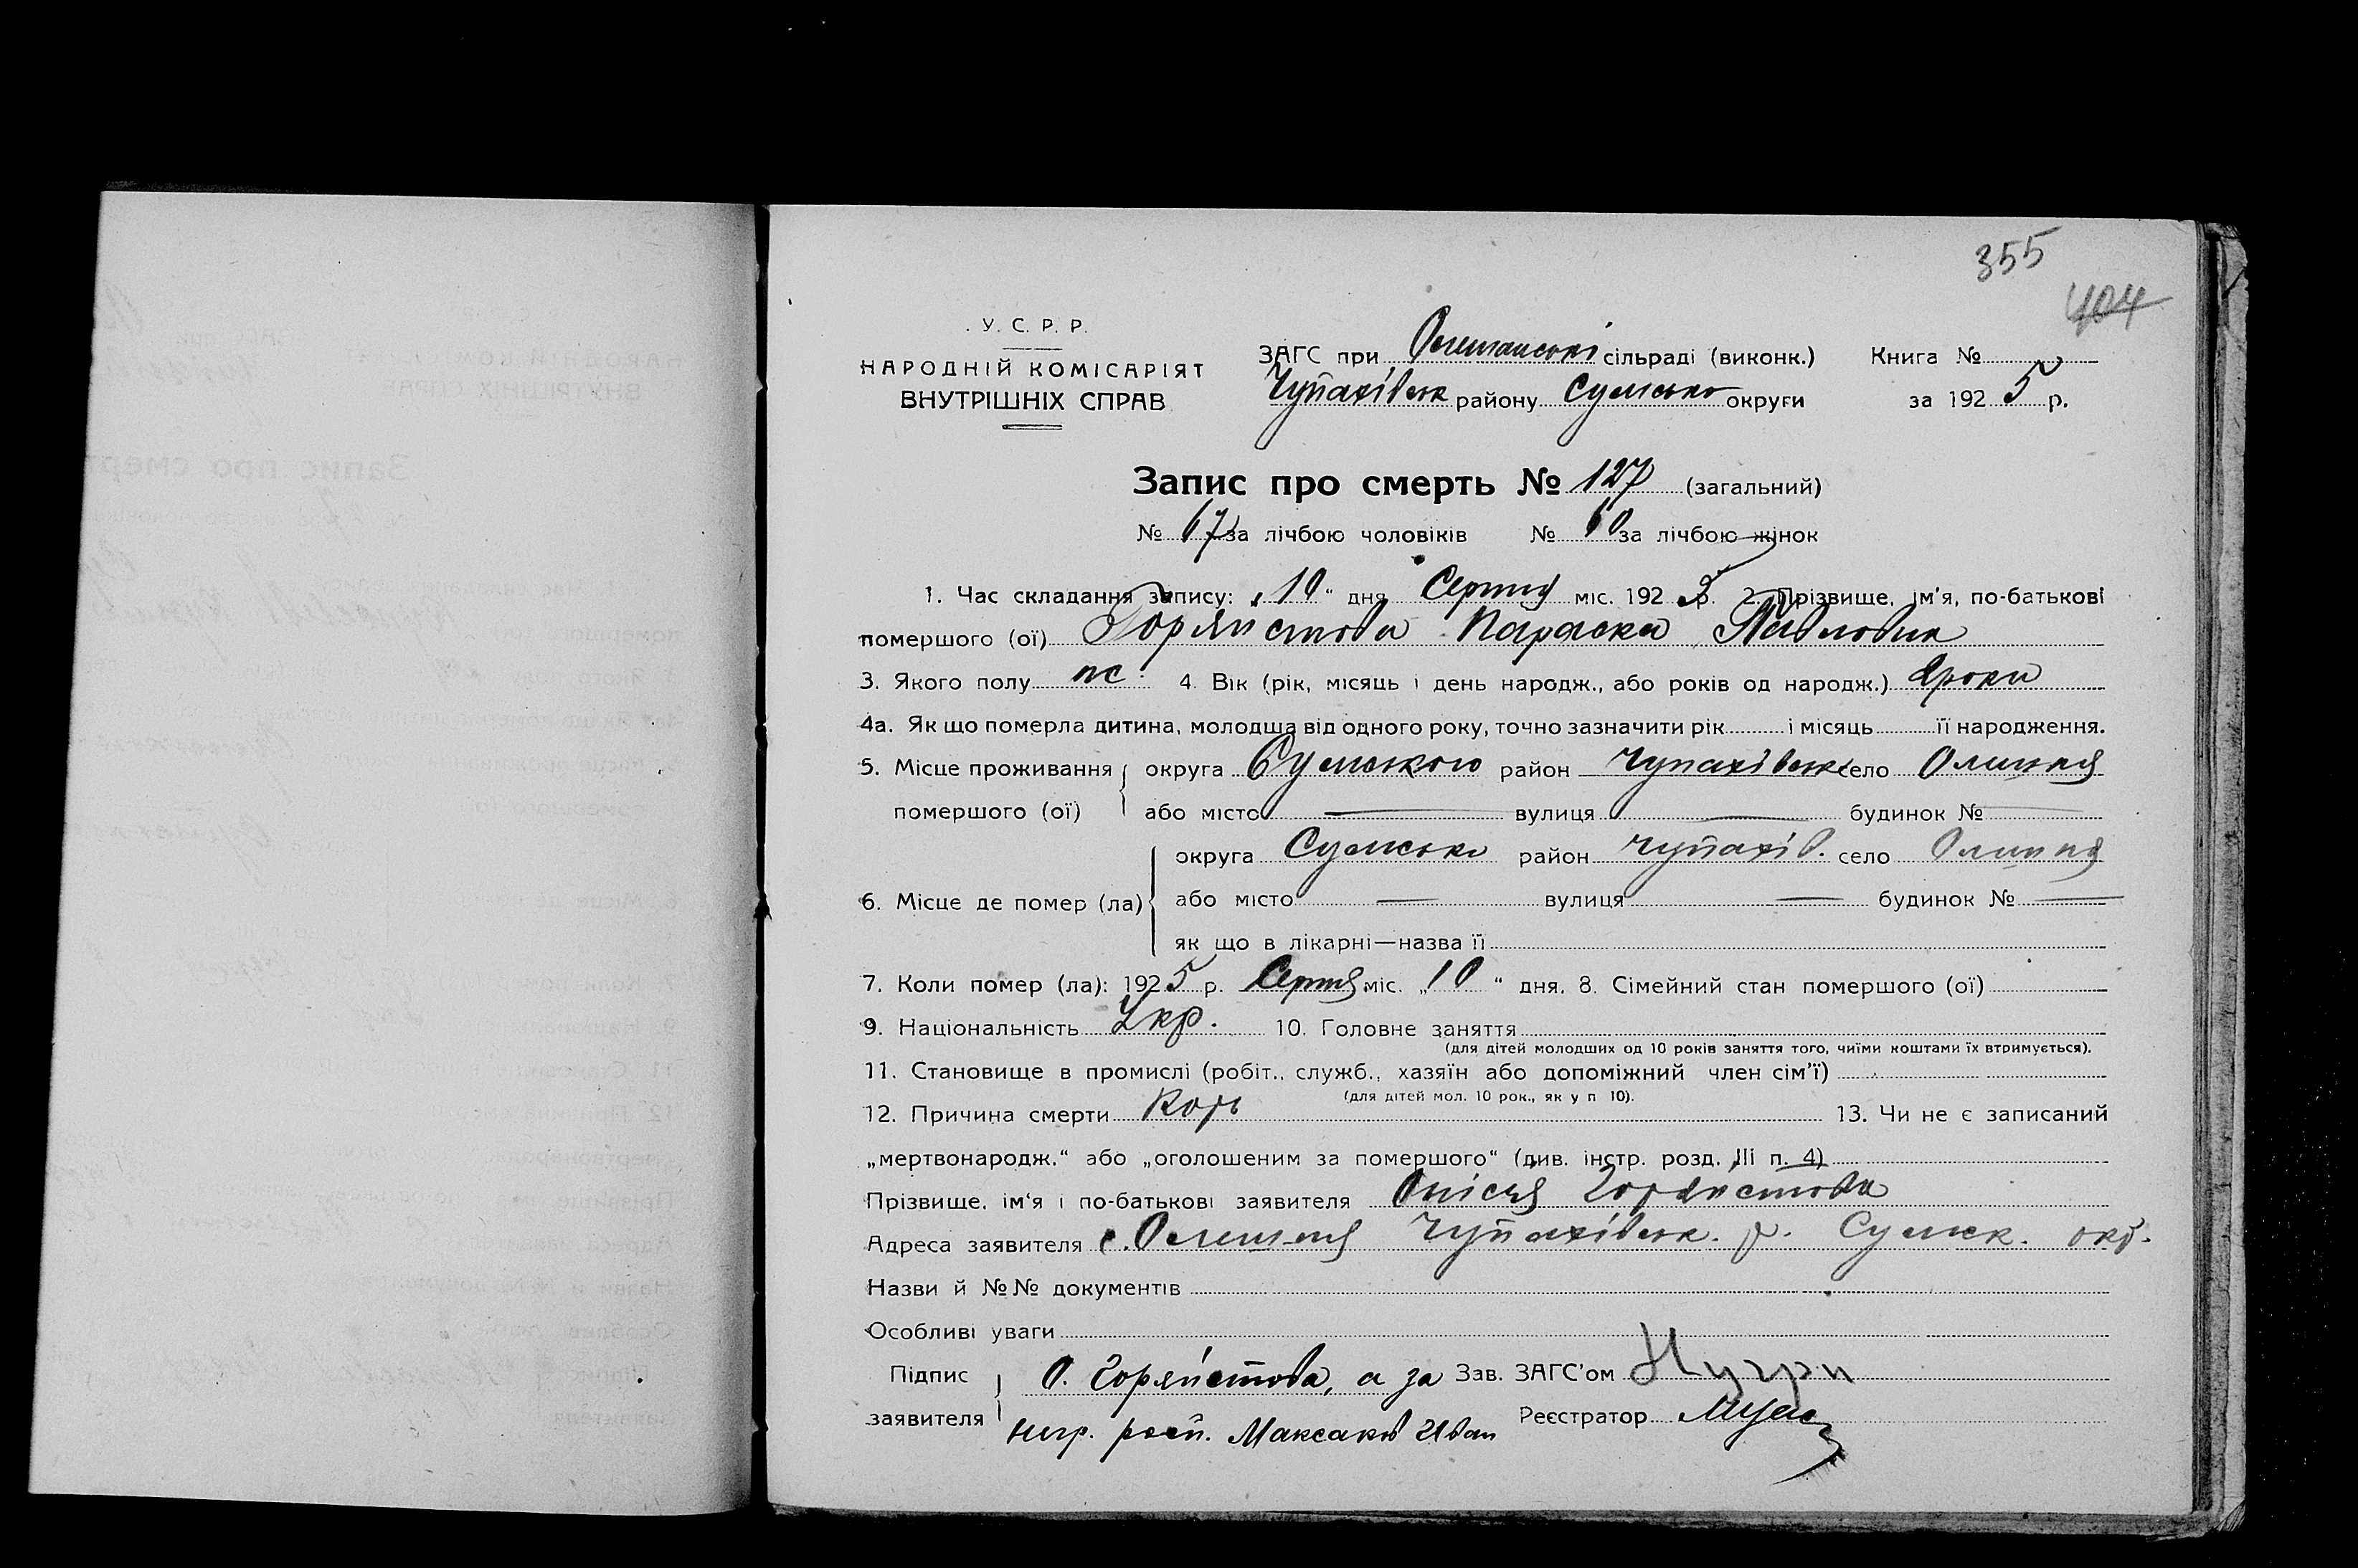 355
404
У. С. Р. Р.
НАРОДНІЙ КОМІСАРІЯТ
ВНУТРІШНІХ СПРАВ
ЗАГС при Олешанські сільраді (виконк.) Книга №
Чупахівськ району Сумсько округи за 1925 р.
Запис про смерть № 127 (загальний)
№ 67 за лічбою чоловіків № 60 за лічбою жінок
1. Час складання запису: „10“ дня Серпня міс. 1925 р. 2. Прізвище, ім'я, по-батькові
помершого (ої) Горяистова Параска Павловна
3. Якого полу 4. Вік (рік, місяць і день народж., або років од народж.) роки
4а. Як що померла дитина, молодща від одного року, точно зазначити рік і місяць її народження.
5. Місце проживання округа Сумського район Чупахівськ село Олишня
помершого (ої) або місто — вулиця — будинок № —
округа Сумсько район Чупахів. село Олишня
6. Місце де помер (ла) або місто — вулиця — будинок № —
як що в лікарні—назва її
7. Коли помер (ла): 1925 р. Серпня міс. „10“ дня. 8. Сімейний стан помершого (ої)
9. Національність Укр. 10. Головне заняття
(для дітей молодших од 10 років заняття того, чиїми коштами їх втримується).
11. Становище в промислі (робіт., служб., хазяїн або допоміжний член сім'ї)
(для дітей мол. 10 рок., як у п 10).
12. Причина смерти Корь 13. Чи не є записаний
„мертвонародж.“ або „оголошеним за помершого“ (див. інстр. розд. III п. 4)
Прізвище, ім'я і по-батькові заявителя Горяистова
Адреса заявителя с. Олешня Чупахівськ. р. Сумск. окр.
Назви й №№ документів
Особливі уваги
Підпис О. Горяистова, а за Зав. ЗАГС'ом
заявителя негр. росп. Максаков Иван Реєстратор